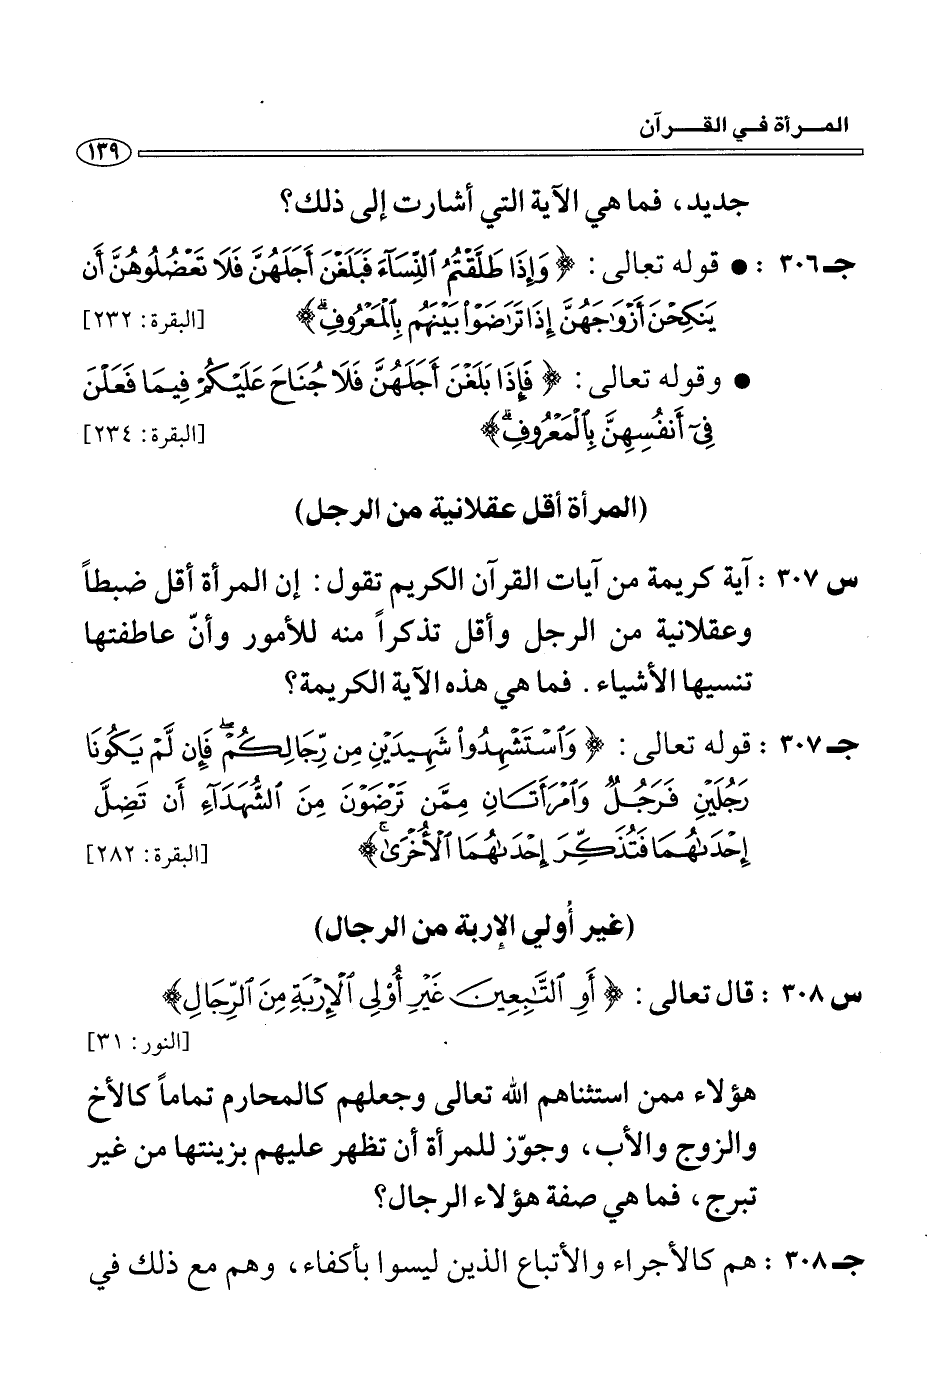 المـــرأة فـــي القـــرآن
١٣٩
جديد، فما هي الآية التي أشارت إلى ذلك؟
جـ٣٠٦ : ● قوله تعالى: ﴿وَإِذَا طَلَّقْتُمُ ٱلنِّسَآءَ فَبَلَغْنَ أَجَلَهُنَّ فَلَا تَعْضُلُوهُنَّ أَن
يَنكِحْنَ أَزْوَٰجَهُنَّ إِذَا تَرَٰضَوْا۟ بَيْنَهُم بِٱلْمَعْرُوفِۗ﴾ [البقرة: ٢٣٢]
● وقوله تعالى: ﴿فَإِذَا بَلَغْنَ أَجَلَهُنَّ فَلَا جُنَاحَ عَلَيْكُمْ فِيمَا فَعَلْنَ
فِىٓ أَنفُسِهِنَّ بِٱلْمَعْرُوفِۗ﴾ [البقرة: ٢٣٤]
(المرأة أقل عقلانية من الرجل)
س ٣٠٧ : آية كريمة من آيات القرآن الكريم تقول: إن المرأة أقل ضبطاً
وعقلانية من الرجل وأقل تذكراً منه للأمور وأنّ عاطفتها
تنسيها الأشياء. فما هي هذه الآية الكريمة؟
جـ٣٠٧ : قوله تعالى: ﴿وَٱسْتَشْهِدُوا۟ شَهِيدَيْنِ مِن رِّجَالِكُمْۖ فَإِن لَّمْ يَكُونَا
رَجُلَيْنِ فَرَجُلٌ وَٱمْرَأَتَانِ مِمَّن تَرْضَوْنَ مِنَ ٱلشُّهَدَآءِ أَن تَضِلَّ
إِحْدَىٰهُمَا فَتُذَكِّرَ إِحْدَىٰهُمَا ٱلْأُخْرَىٰۚ﴾ [البقرة: ٢٨٢]
(غير أُولي الإربة من الرجال)
س ٣٠٨ : قال تعالى: ﴿أَوِ ٱلتَّٰبِعِينَ غَيْرِ أُو۟لِى ٱلْإِرْبَةِ مِنَ ٱلرِّجَالِ﴾
[النور: ٣١]
هؤلاء ممن استثناهم الله تعالى وجعلهم كالمحارم تماماً كالأخ
والزوج والأب، وجوّز للمرأة أن تظهر عليهم بزينتها من غير
تبرج، فما هي صفة هؤلاء الرجال؟
جـ٣٠٨ : هم كالأجراء والأتباع الذين ليسوا بأكفاء، وهم مع ذلك في